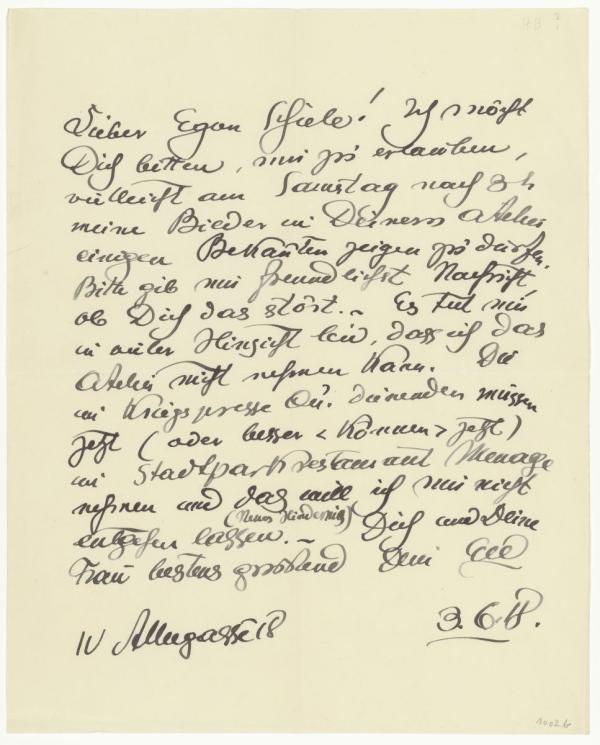 Lieber Egon Schiele! Ich möcht
Dich bitten, mir zu erlauben,
vielleicht am Samstag nach 3 h
meine Bilder in Deinem Atelier
einigen Bekannten zeigen zu dürfen.
Bitte gib mir freundlichst Nachricht,
ob Dich das stört. – Es tut mir
in vieler Hinsicht leid, dass ich das
Atelier nicht nehmen kann. Die
im Kriegspresse Qu. dienenden müssen
jetzt (oder besser < können > jetzt)
im Stadtparkrestaurant Menage
nehmen und das will ich mir nicht
(Neues Hindernis)
entgehen lassen. – Dich und Deine
Frau bestens grüssend Dein
IV Alleegasse 18
3. 6. 18.
10026